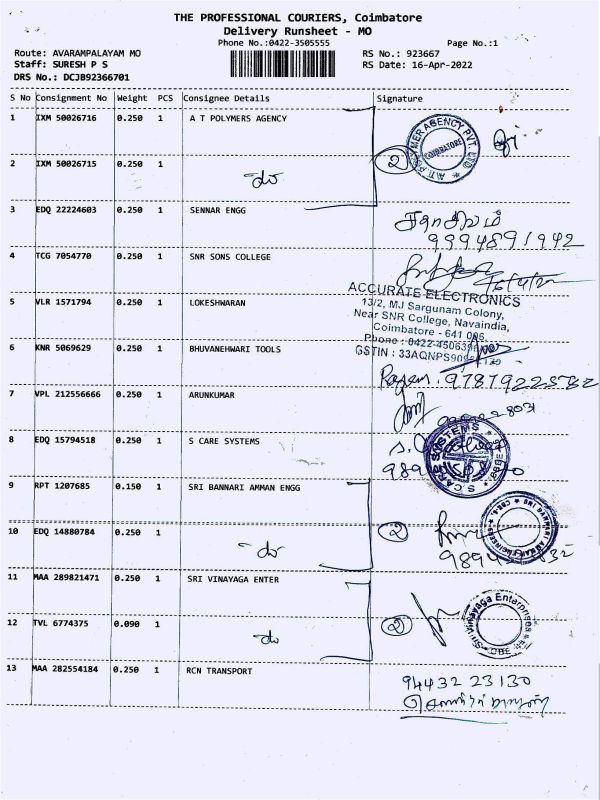 THE PROFESSIONAL COURIERS, Coimbatore
Delivery Runsheet - MO
Phone No.:0422-3505555
Page No.:1
Route: AVARAMPALAYAM MO
RS No.: 923667
Staff: SURESH P S
RS Date: 16-Apr-2022
DRS No.: DCJB92366701
S No Consignment No Weight PCS Consignee Details Signature
1 IXM 50026716 0.250 1 A T POLYMERS AGENCY
A.T. POLYMER AGENCY PVT. LTD
COIMBATORE
2 IXM 50026715 0.250 1
2
3 EDQ 22224603 0.250 1 SENNAR ENGG
சதாசிவம்
9994891942
4 TCG 7054770 0.250 1 SNR SONS COLLEGE
5 VLR 1571794 0.250 1 LOKESHWARAN
ACCURATE ELECTRONICS
13/2, MJ Sargunam Colony,
Near SNR College, Navaindia,
Coimbatore - 641 006.
Phone : 0422-450639
GSTIN : 33AQNPS909
6 KNR 5069629 0.250 1 BHUVANEHWARI TOOLS
7 VPL 212556666 0.250 1 ARUNKUMAR
8 EDQ 15794518 0.250 1 S CARE SYSTEMS
S.CARE SYSTEMS
9 RPT 1207685 0.150 1 SRI BANNARI AMMAN ENGG
10 EDQ 14880784 0.250 1
2
11 MAA 289821471 0.250 1 SRI VINAYAGA ENTER
Sri Vinayaga Enterprises
CBE
12 TVL 6774375 0.090 1
2
13 MAA 282554184 0.250 1 RCN TRANSPORT
94432 23130